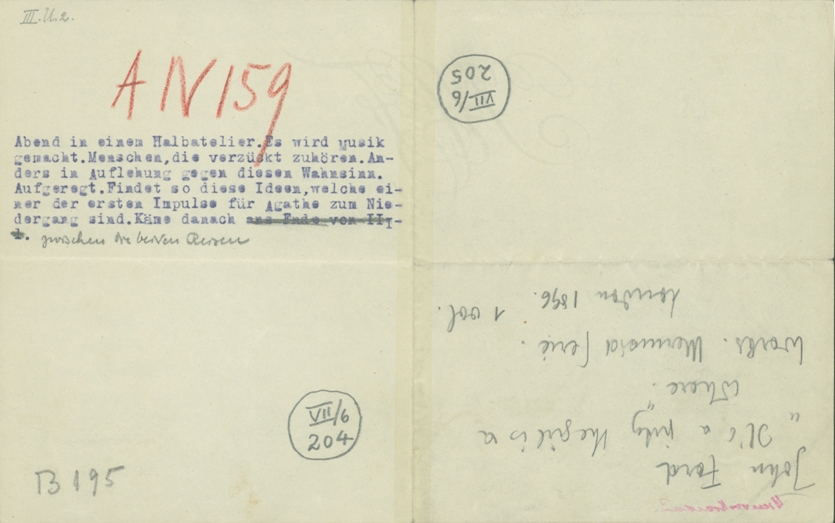 III.U.2.
AN 159
Abend in einem Halbatelier.Es wird Musik
gemacht.Menschen,die verzückt zuhören.An-
ders in Auflehung gegen diesen Wahnsinn.
Aufgeregt.Findet so diese Ideen,welche ei-
ner der ersten Impulse für Agathe zum Nie-
dergang sind.Käme danach ans Ende von III-
zwischen die beiden Reisen
VII/6
204
B 195
VII/6
205
John Ford
"It's a pity the girl is a
Where."
Works. Mermaid Serie.
London 1896. 1 vol.